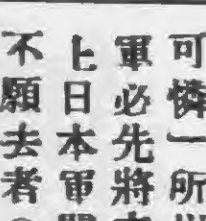 可憐一所
軍必先將
上日本軍
不願去者